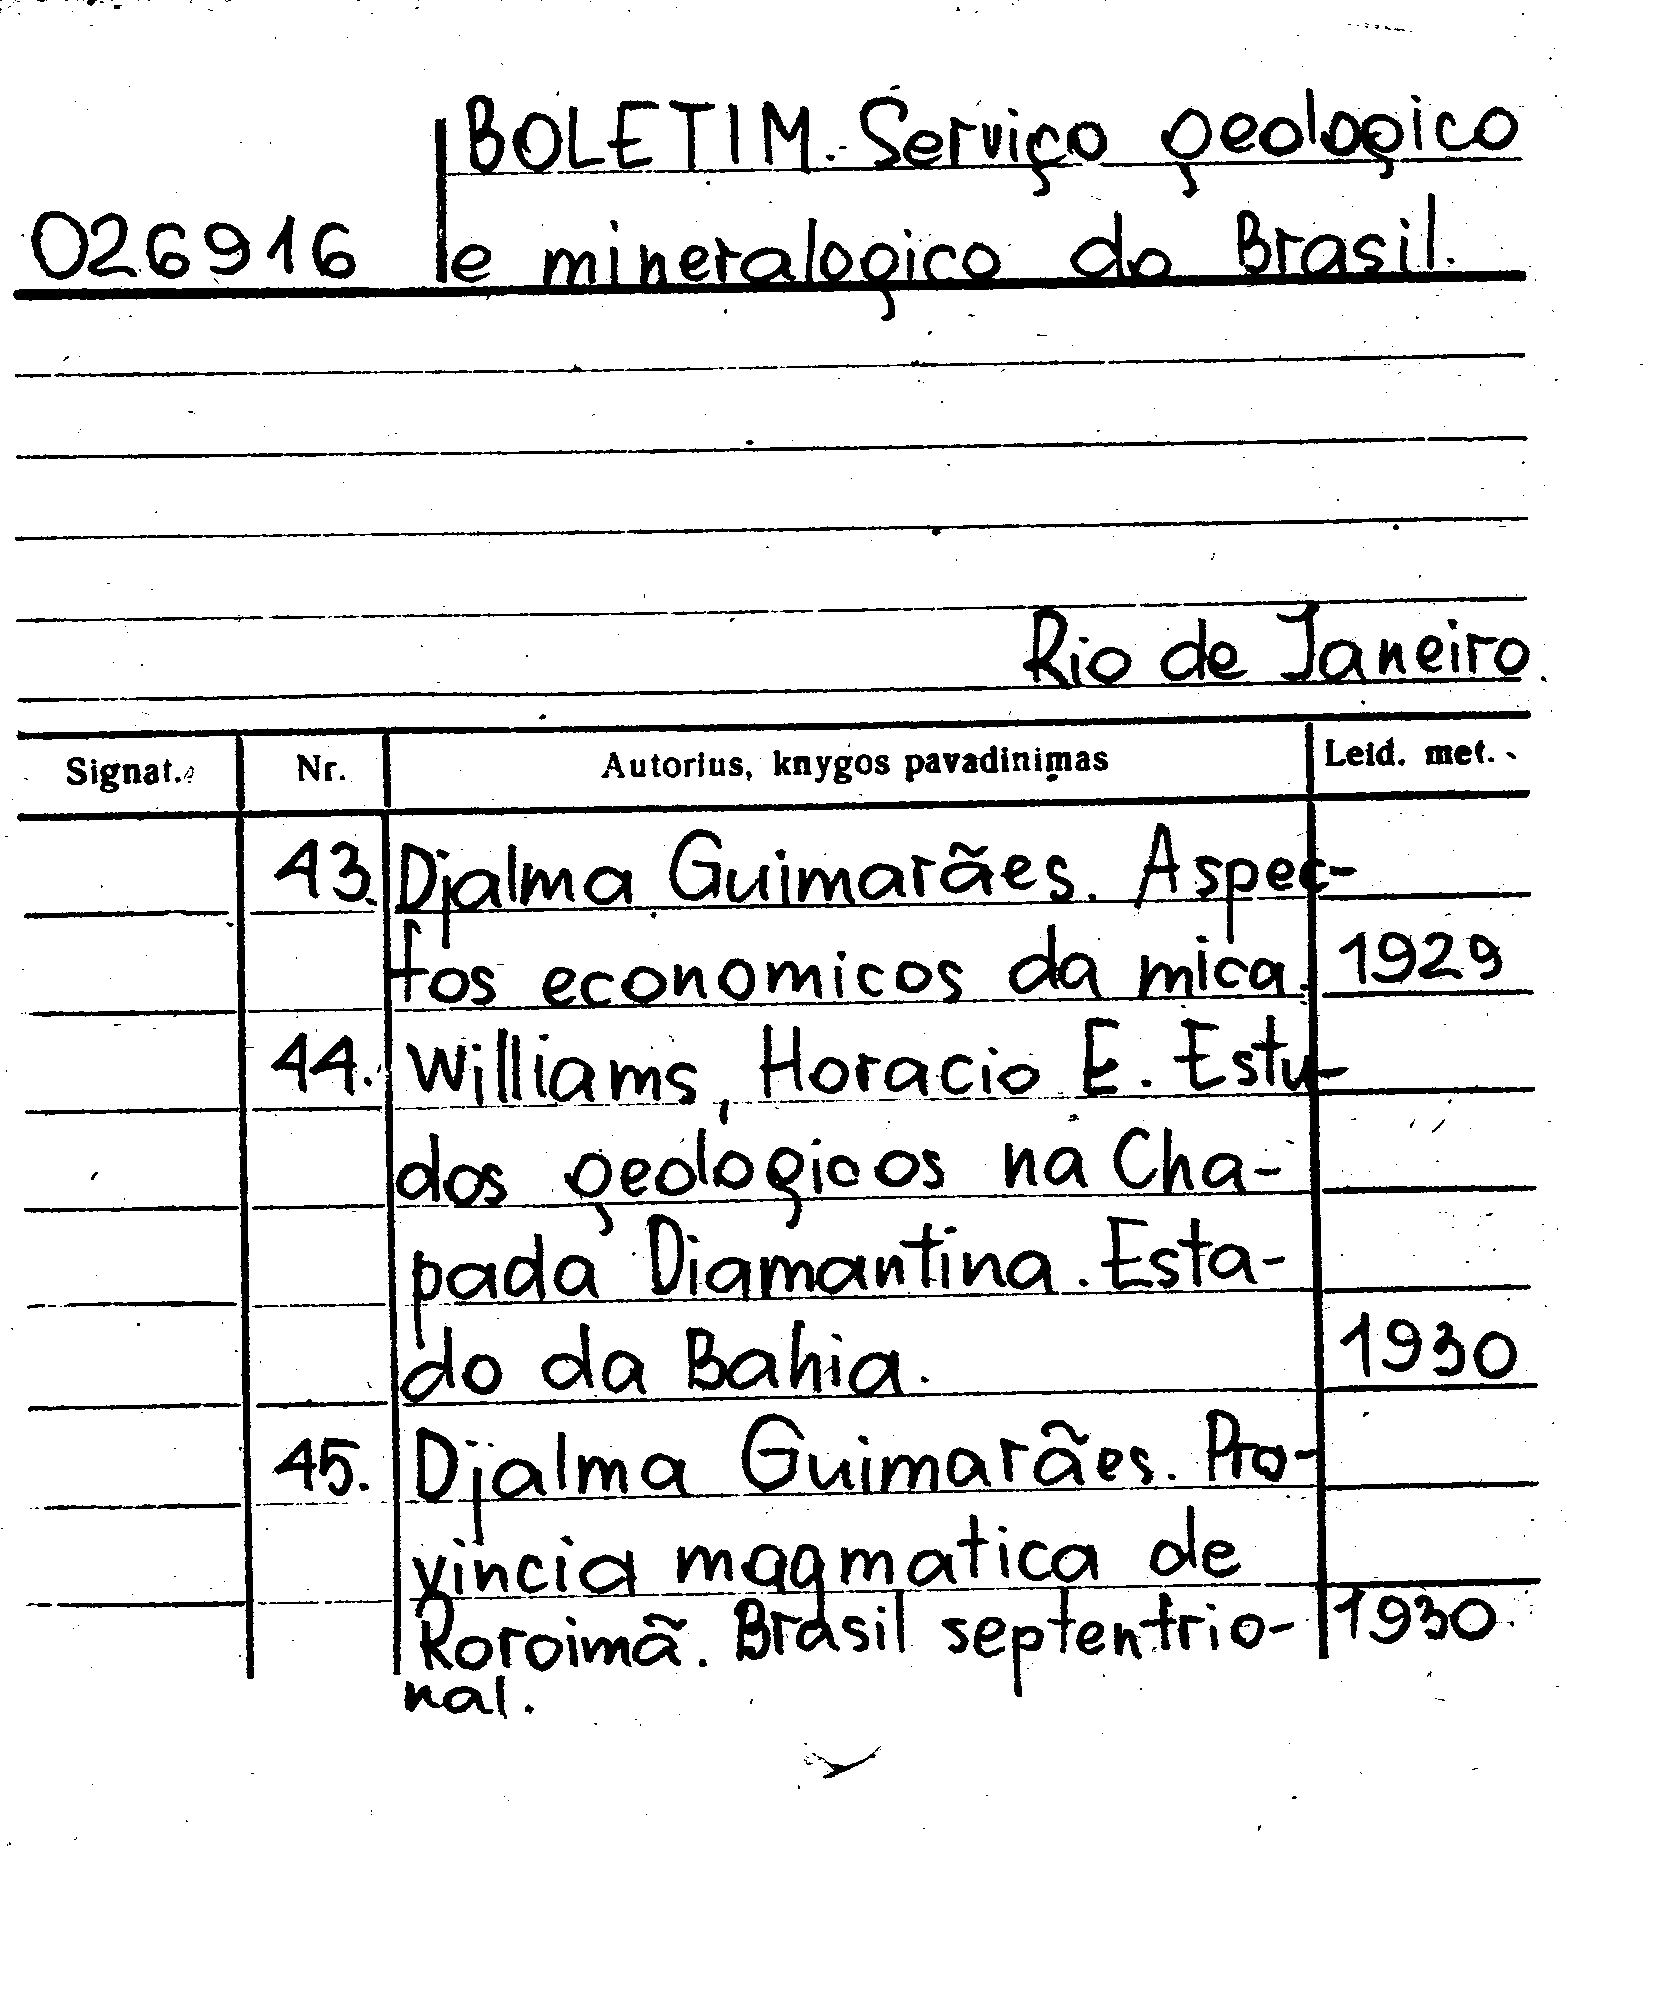 BOLETIM. Serviço geologico
026916 e mineralogico do Brasil.
Rio de Janeiro.
Signat. Nr. Autorius, knygos pavadinimas Leid. met.
43. Djalma Guimarães. Aspec-
tos economicos da mica. 1929
44. Williams, Horacio E. Estu-
dos geologicos na Cha-
pada Diamantina. Esta-
do da Bahia. 1930
45. Djalma Guimarães. Pro-
vincia magmatica de
Roroimã. Brasil septentrio- 1930
nal.